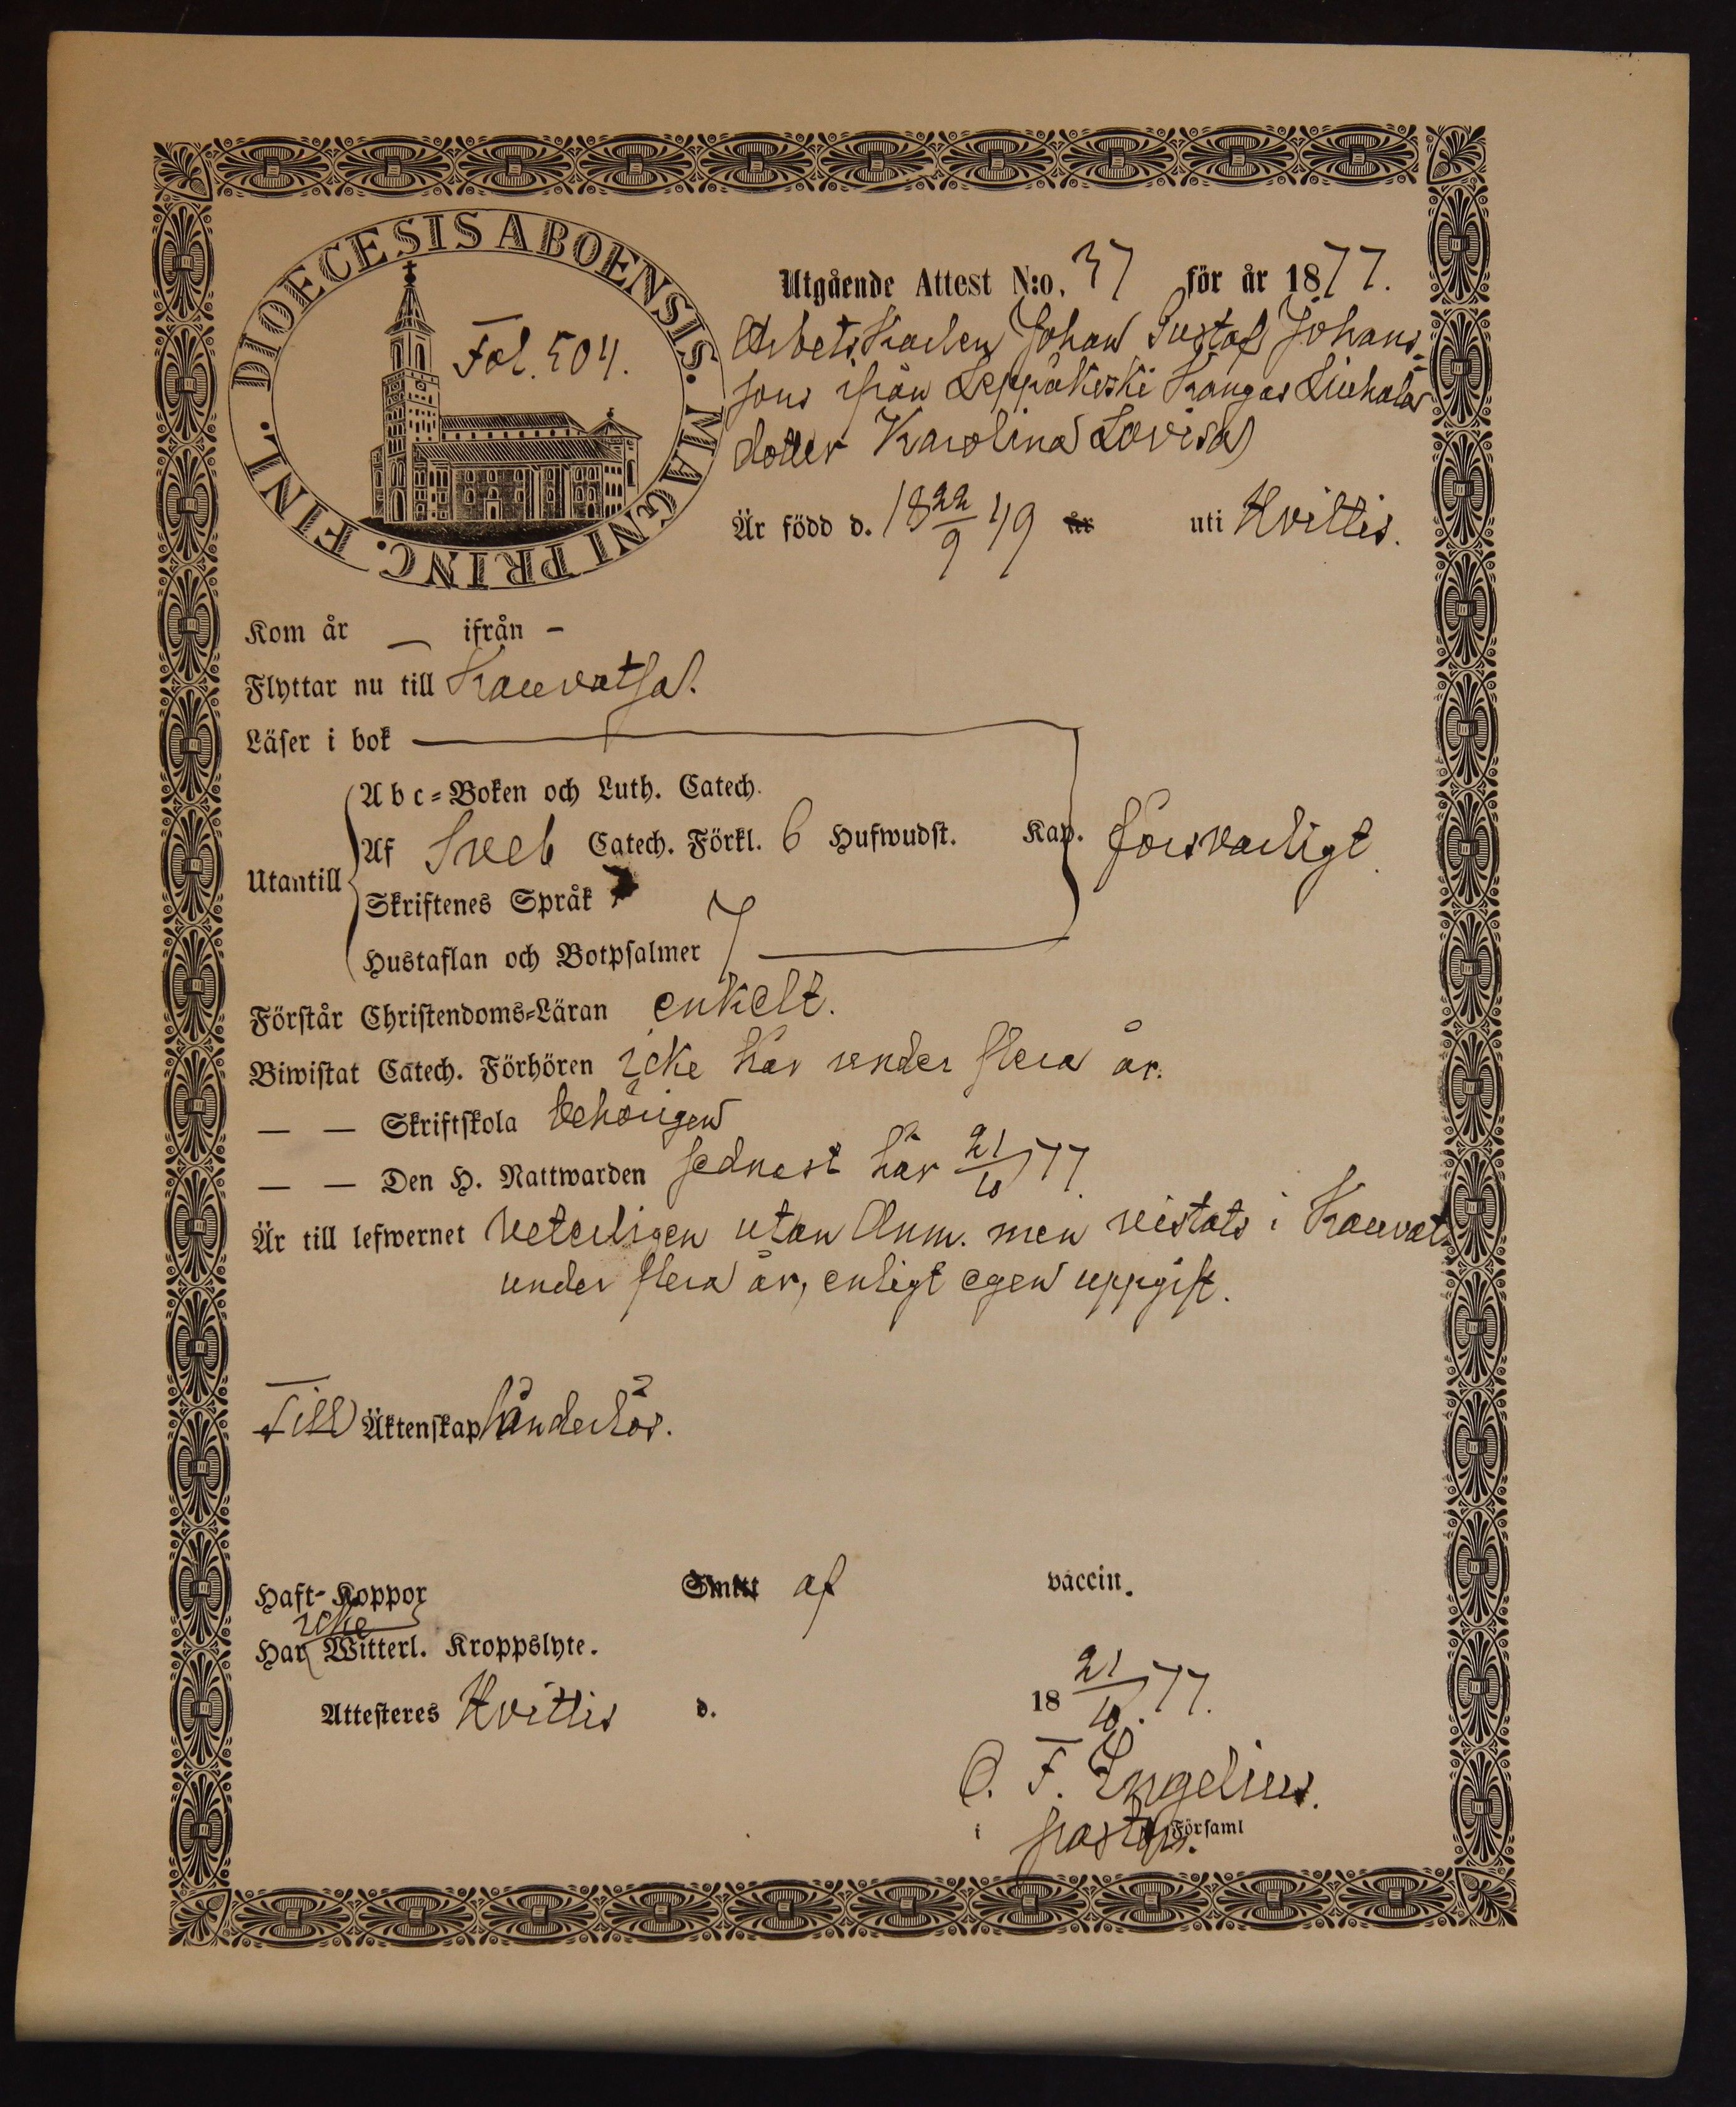 DIOECESIS ABOENSIS. MAGNI PRINC. FINL.
Fol. 504.
Utgående Attest N:o. 37 för år 1877.
Arbetskarlen Johan Gustaf Johans-
sons ifrån Leppäkoski Kangas
dotter Karolina Lovisa
Är född d. 18 22/9 49 år uti Hvittis.
Kom år — ifrån –
Flyttar nu till Kauvatsa.
Läser i bok
Abc-Boken och Luth. Catech.
Utantill
Af Sveb Catech. Förkl. 6 Hufwudst. Kap. försvarligt
Skriftenes Språk
Hustaflan och Botpsalmer 7
Förstår Christendoms-Läran enkelt.
Biwistat Catech. Förhören icke här under flera år.
— — Skriftskola behörigen
— — Den H. Nattwarden sednast här 21/10 77.
Är till lefwernet veterligen utan Anm. men vistats i Kauvats
under flera år, enligt egen uppgift.
Till Äktenskap hinderlös.
Haft Koppor Smitt af vaccin.
icke
Har Witterl. Kroppslyte.
Attesteres Hvittis d. 18 21/10 77.
C. F. Engelius.
i pastor. Församl